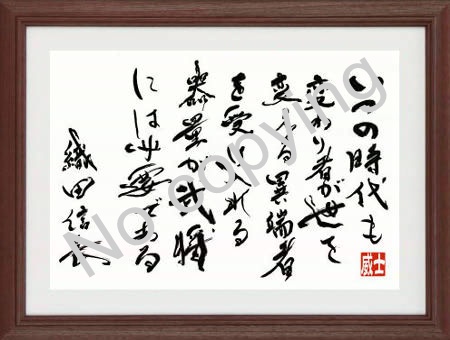 いつの時代も
変わり者が世を
変える異端者
を受け入れる
器量が武将
には必要である
織田信長
威士
No copying